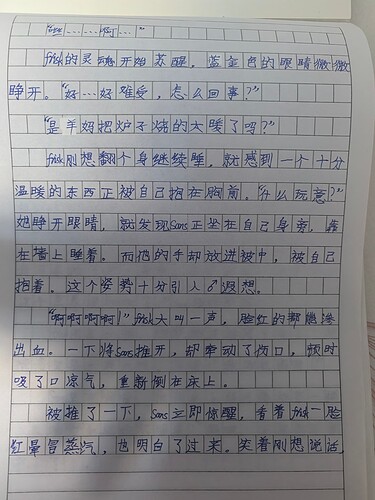 “唔……啊……”
frisk的灵魂开始苏醒，蓝金色的眼睛微微
睁开。“好…好难受，怎么回事？”
“是羊妈把炉子烧的太暖了吗？”
frisk刚想翻个身继续睡，就感到一个十分
温暖的东西正被自己抱在胸前。“什么玩意？”
她睁开眼睛，就发现sans正坐在自己身旁，靠
在墙上睡着。而他的手却放进被中，被自己
抱着。这个姿势十分引人♂遐想。
“啊啊啊啊！”frisk大叫一声，脸红的都能渗
出血。一下将sans推开，却牵动了伤口，顿时
吸了口凉气，重新倒在床上。
被推了一下，sans立即惊醒，看着frisk一脸
红晕冒蒸汽，也明白了过来。笑着刚想说话，